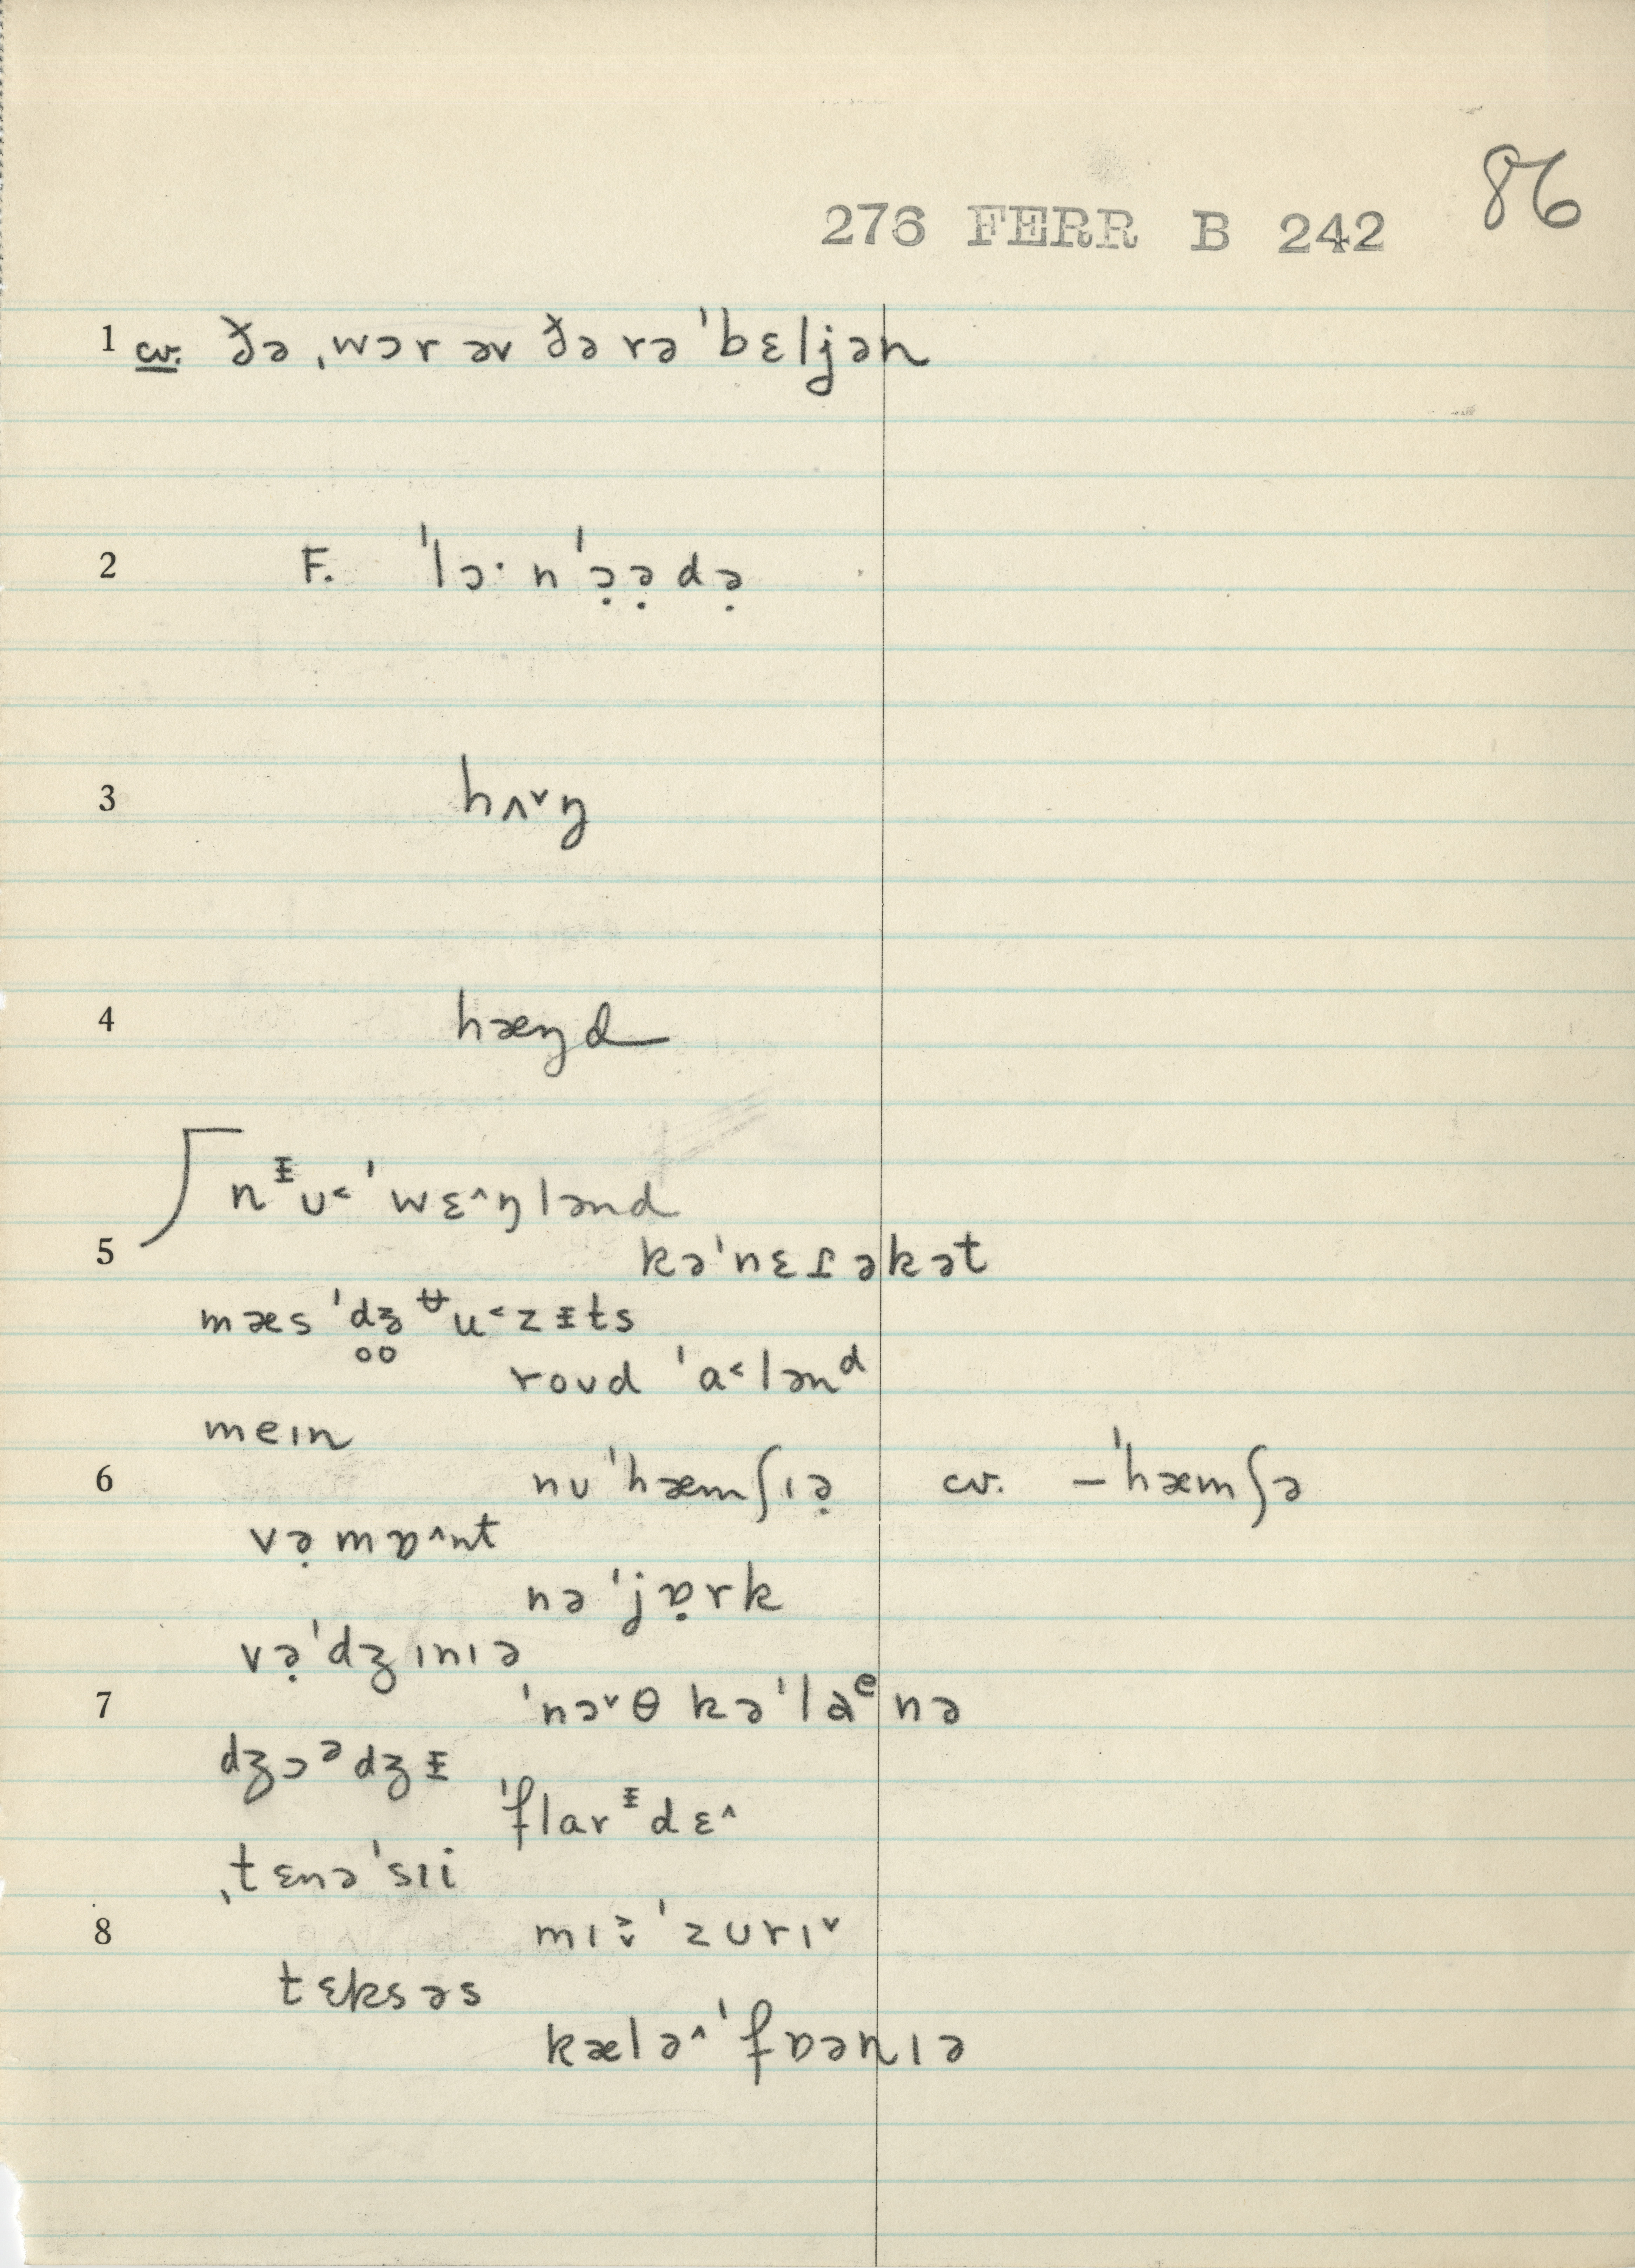 86
276 FERR B 242
1 cv. ðə ˌwɔr əv ðə rə ˈbɛljən
2 F. ˈlɔ· n ˈɔ̣ə̣də̣
3 hʌ˅ŋ
4 hæŋd
nᵻʊ˂ ˈwɛ˄ŋlənd
5 kəˈnɛɾəkət
mæsˈdʒ̊ᵿu˂zᵻts
roʊd ˈa˂lənᵈ
meɪn
6 nʊˈhæmʃɪə̣ cv. –ˈhæmʃə
və̣mɒ˄nt
nəˈjɒ̣rk
və̣ˈdʒɪnɪə
7 ˈnɔ˅θ kəˈlaᵉnə
dʒɔᵊdʒᵻ
ˈflarᵻdɛ˄
ˌtɛnəˈsɪi
8 mɪ˅˃ˈzʊrɪ˅
tɛksəs
kælə˄ˈfɒənɪə